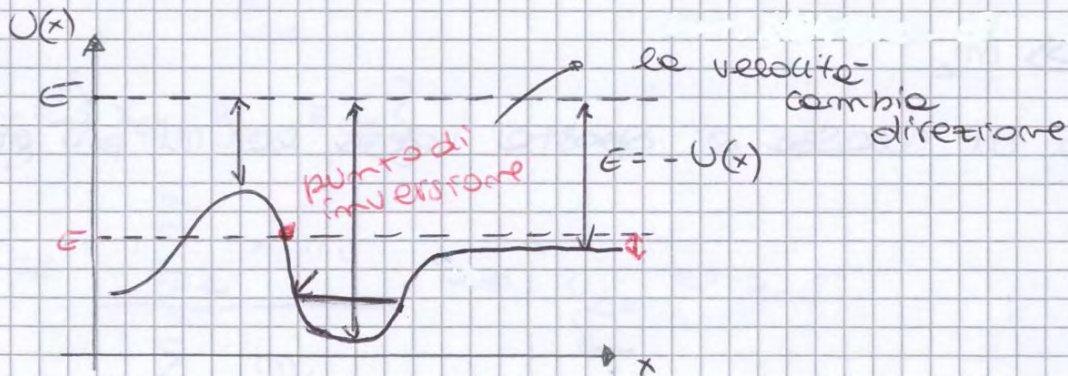 U(x)
E
la velocità
cambia
direzione
punto di
inversione
E = - U(x)
E
x